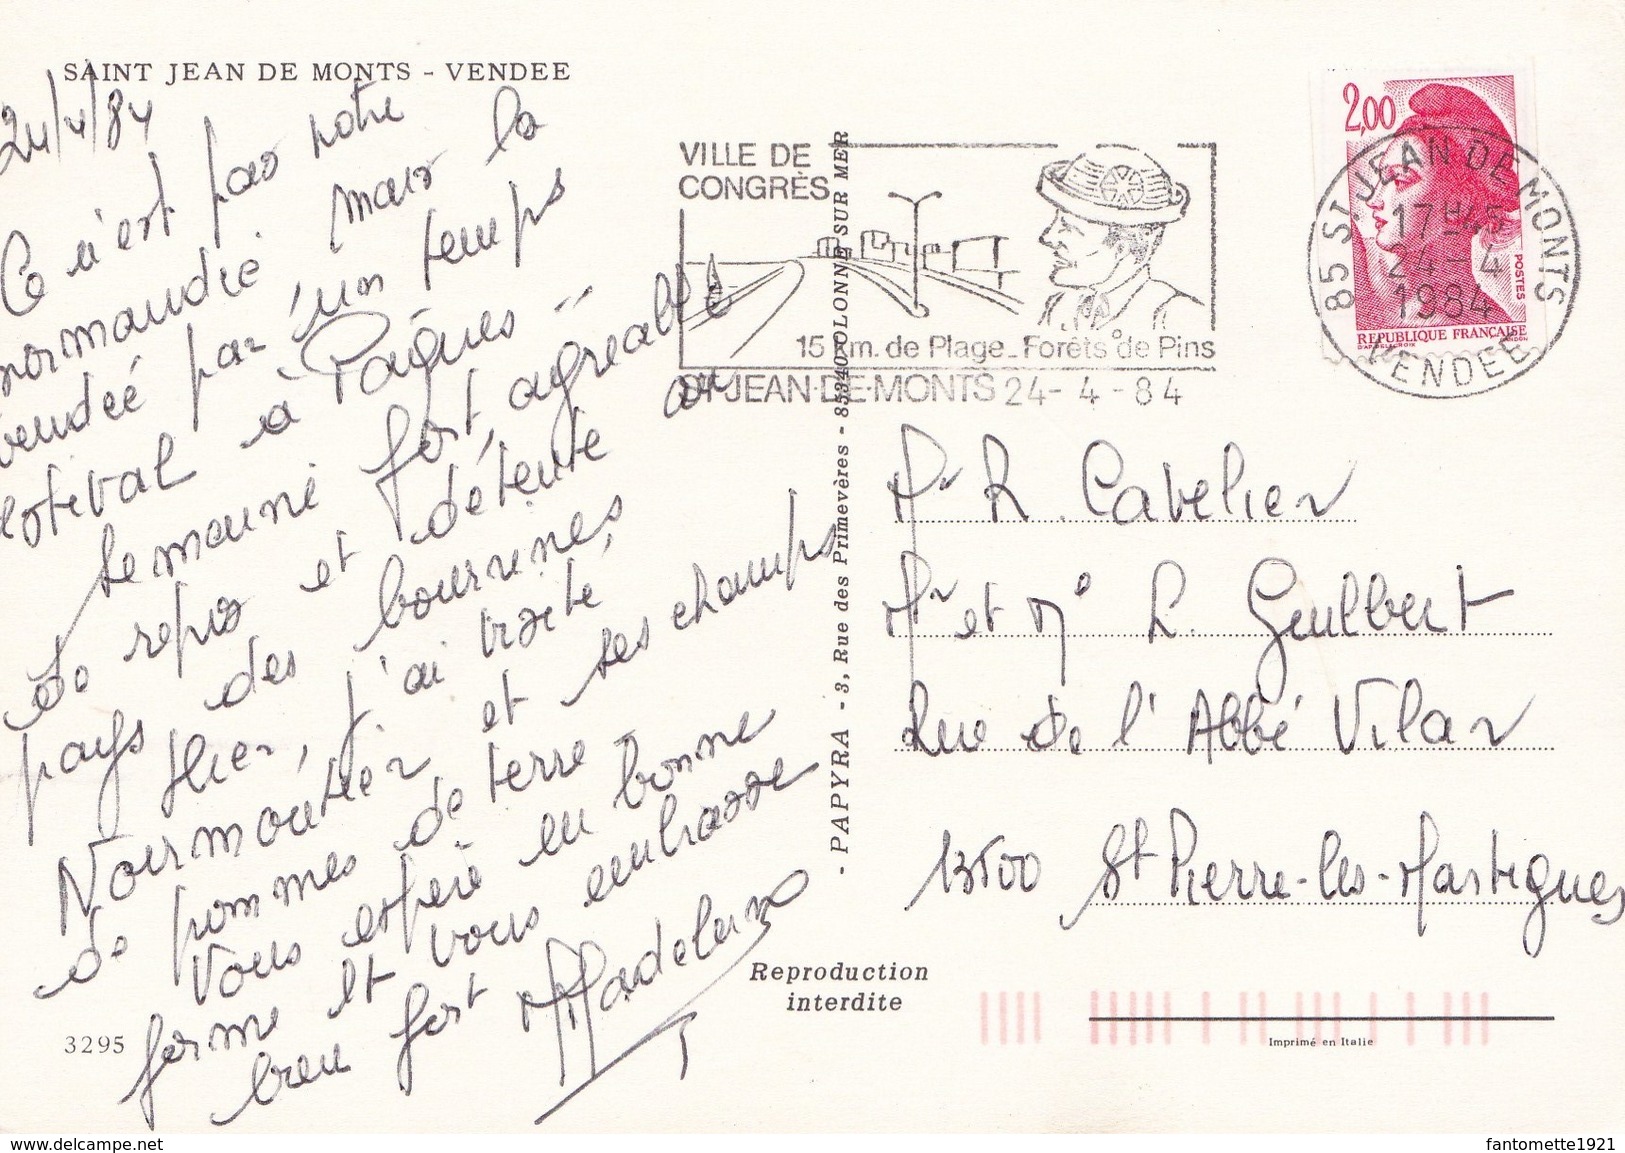 SAINT JEAN DE MONTS - VENDEE
24/4/84
Ce n'est pas notre
normandie mais la
vendée par un temps
estival à Pâques -
Semaine fort agréable
de repos et détente au
pays des bourrines,
Hier, j'ai visité
Noirmoutier et ses champs
de pommes de terre
Vous espère en bonne
forme et vous embrasse
bien fort Madeleine
3295
- PAPYRA - 3, Rue des Primevères - 85340 OLONNE SUR MER
Reproduction
interdite
VILLE DE
CONGRÈS
15 km. de Plage_Forêts de Pins
ST-JEAN-DE-MONTS 24- 4 -84
2,00
POSTES
REPUBLIQUE FRANÇAISE
85 ST. JEAN DE MONTS
17 H
24 - 4
1984
VENDEE
Mr R. Cavelier
Mr et Me L. Guilbert
Rue de l'Abbé Vilar
13500 St Pierre-les-Martigues
Imprimé en Italie
www.delcampe.net
fantomette1921